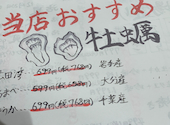 当店おすすめ
牡蠣
田湾 699円(税768円) 岩手産
699円(税768円) 大分産
699円(税768円) 千葉産